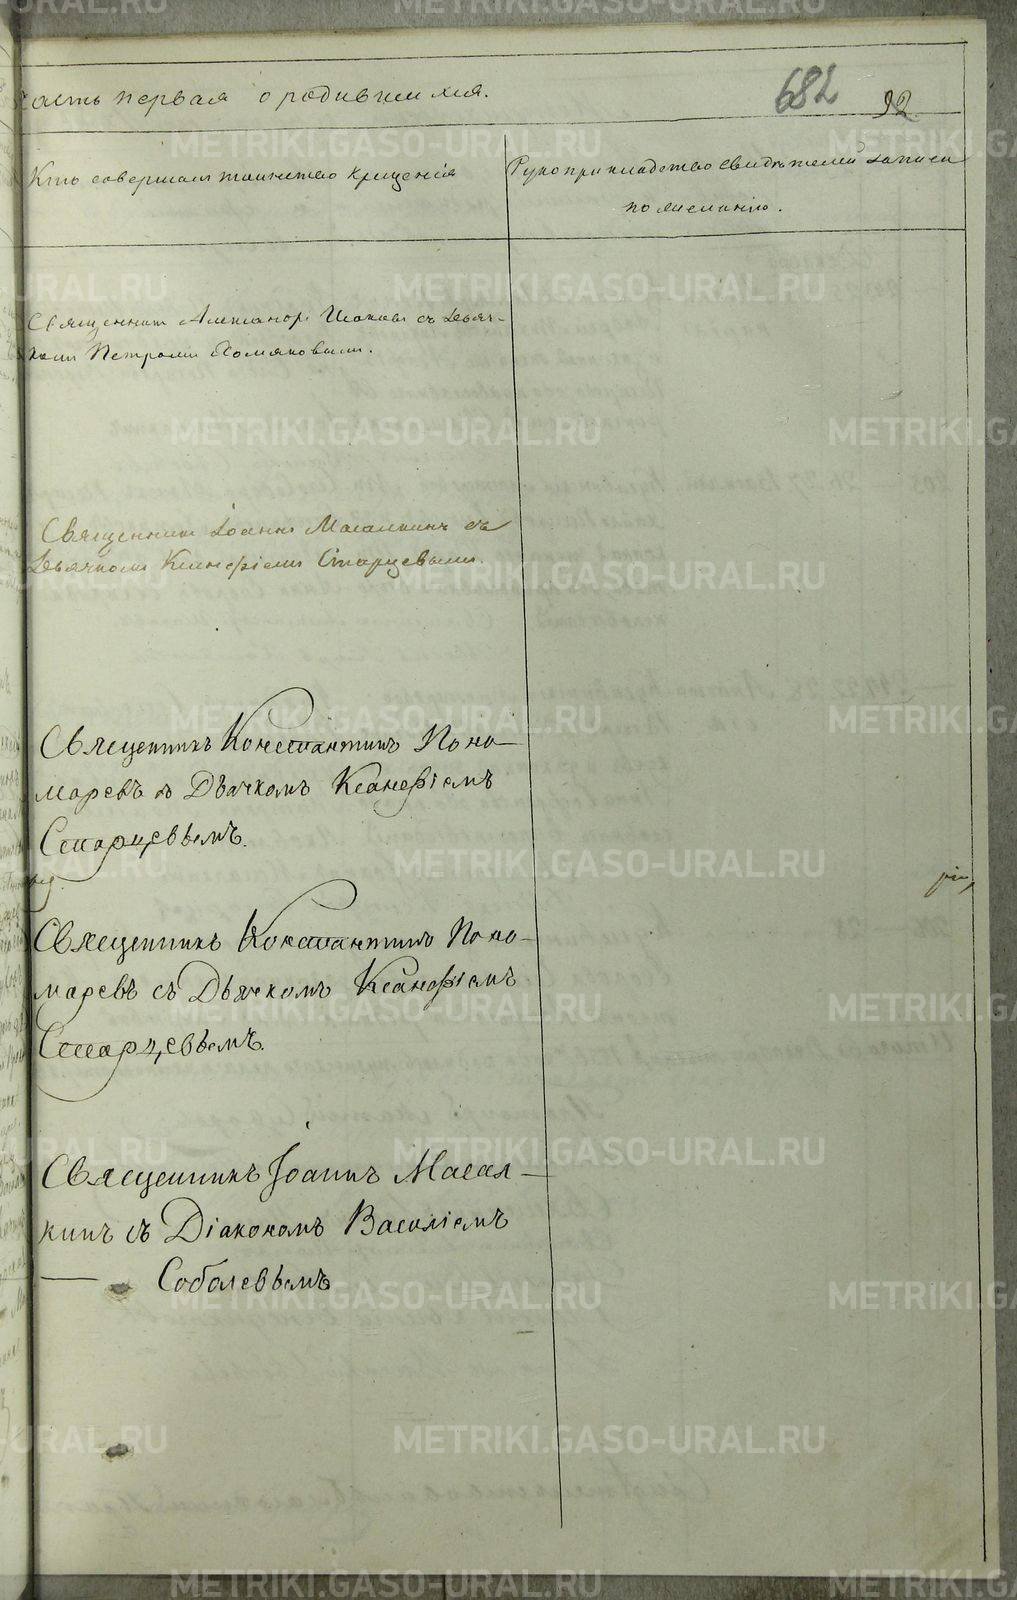 часть первая о родившихся.
682 92
Кто совершал таинство крещенія
Рукоприкладство свидѣтелей записи
по желанію.
Священник Александр Исаков съ Дьяч-
ком Петром Хомяковым.
Священник Іоанн Масалкинъ съ
Дьячком Ксанфіем Старцевым.
Священникъ Константинъ Поно-
моревъ съ Дьячкомъ Ксанфіемъ
Старцевымъ.
Священникъ Константинъ Поно-
маревъ съ Дьячкомъ Ксанфіемъ
Старцевымъ.
Священникъ Іоаннъ Масал-
кинъ съ Діакономъ Василіемъ
Соболевымъ
METRIKI.GASO-URAL.RU